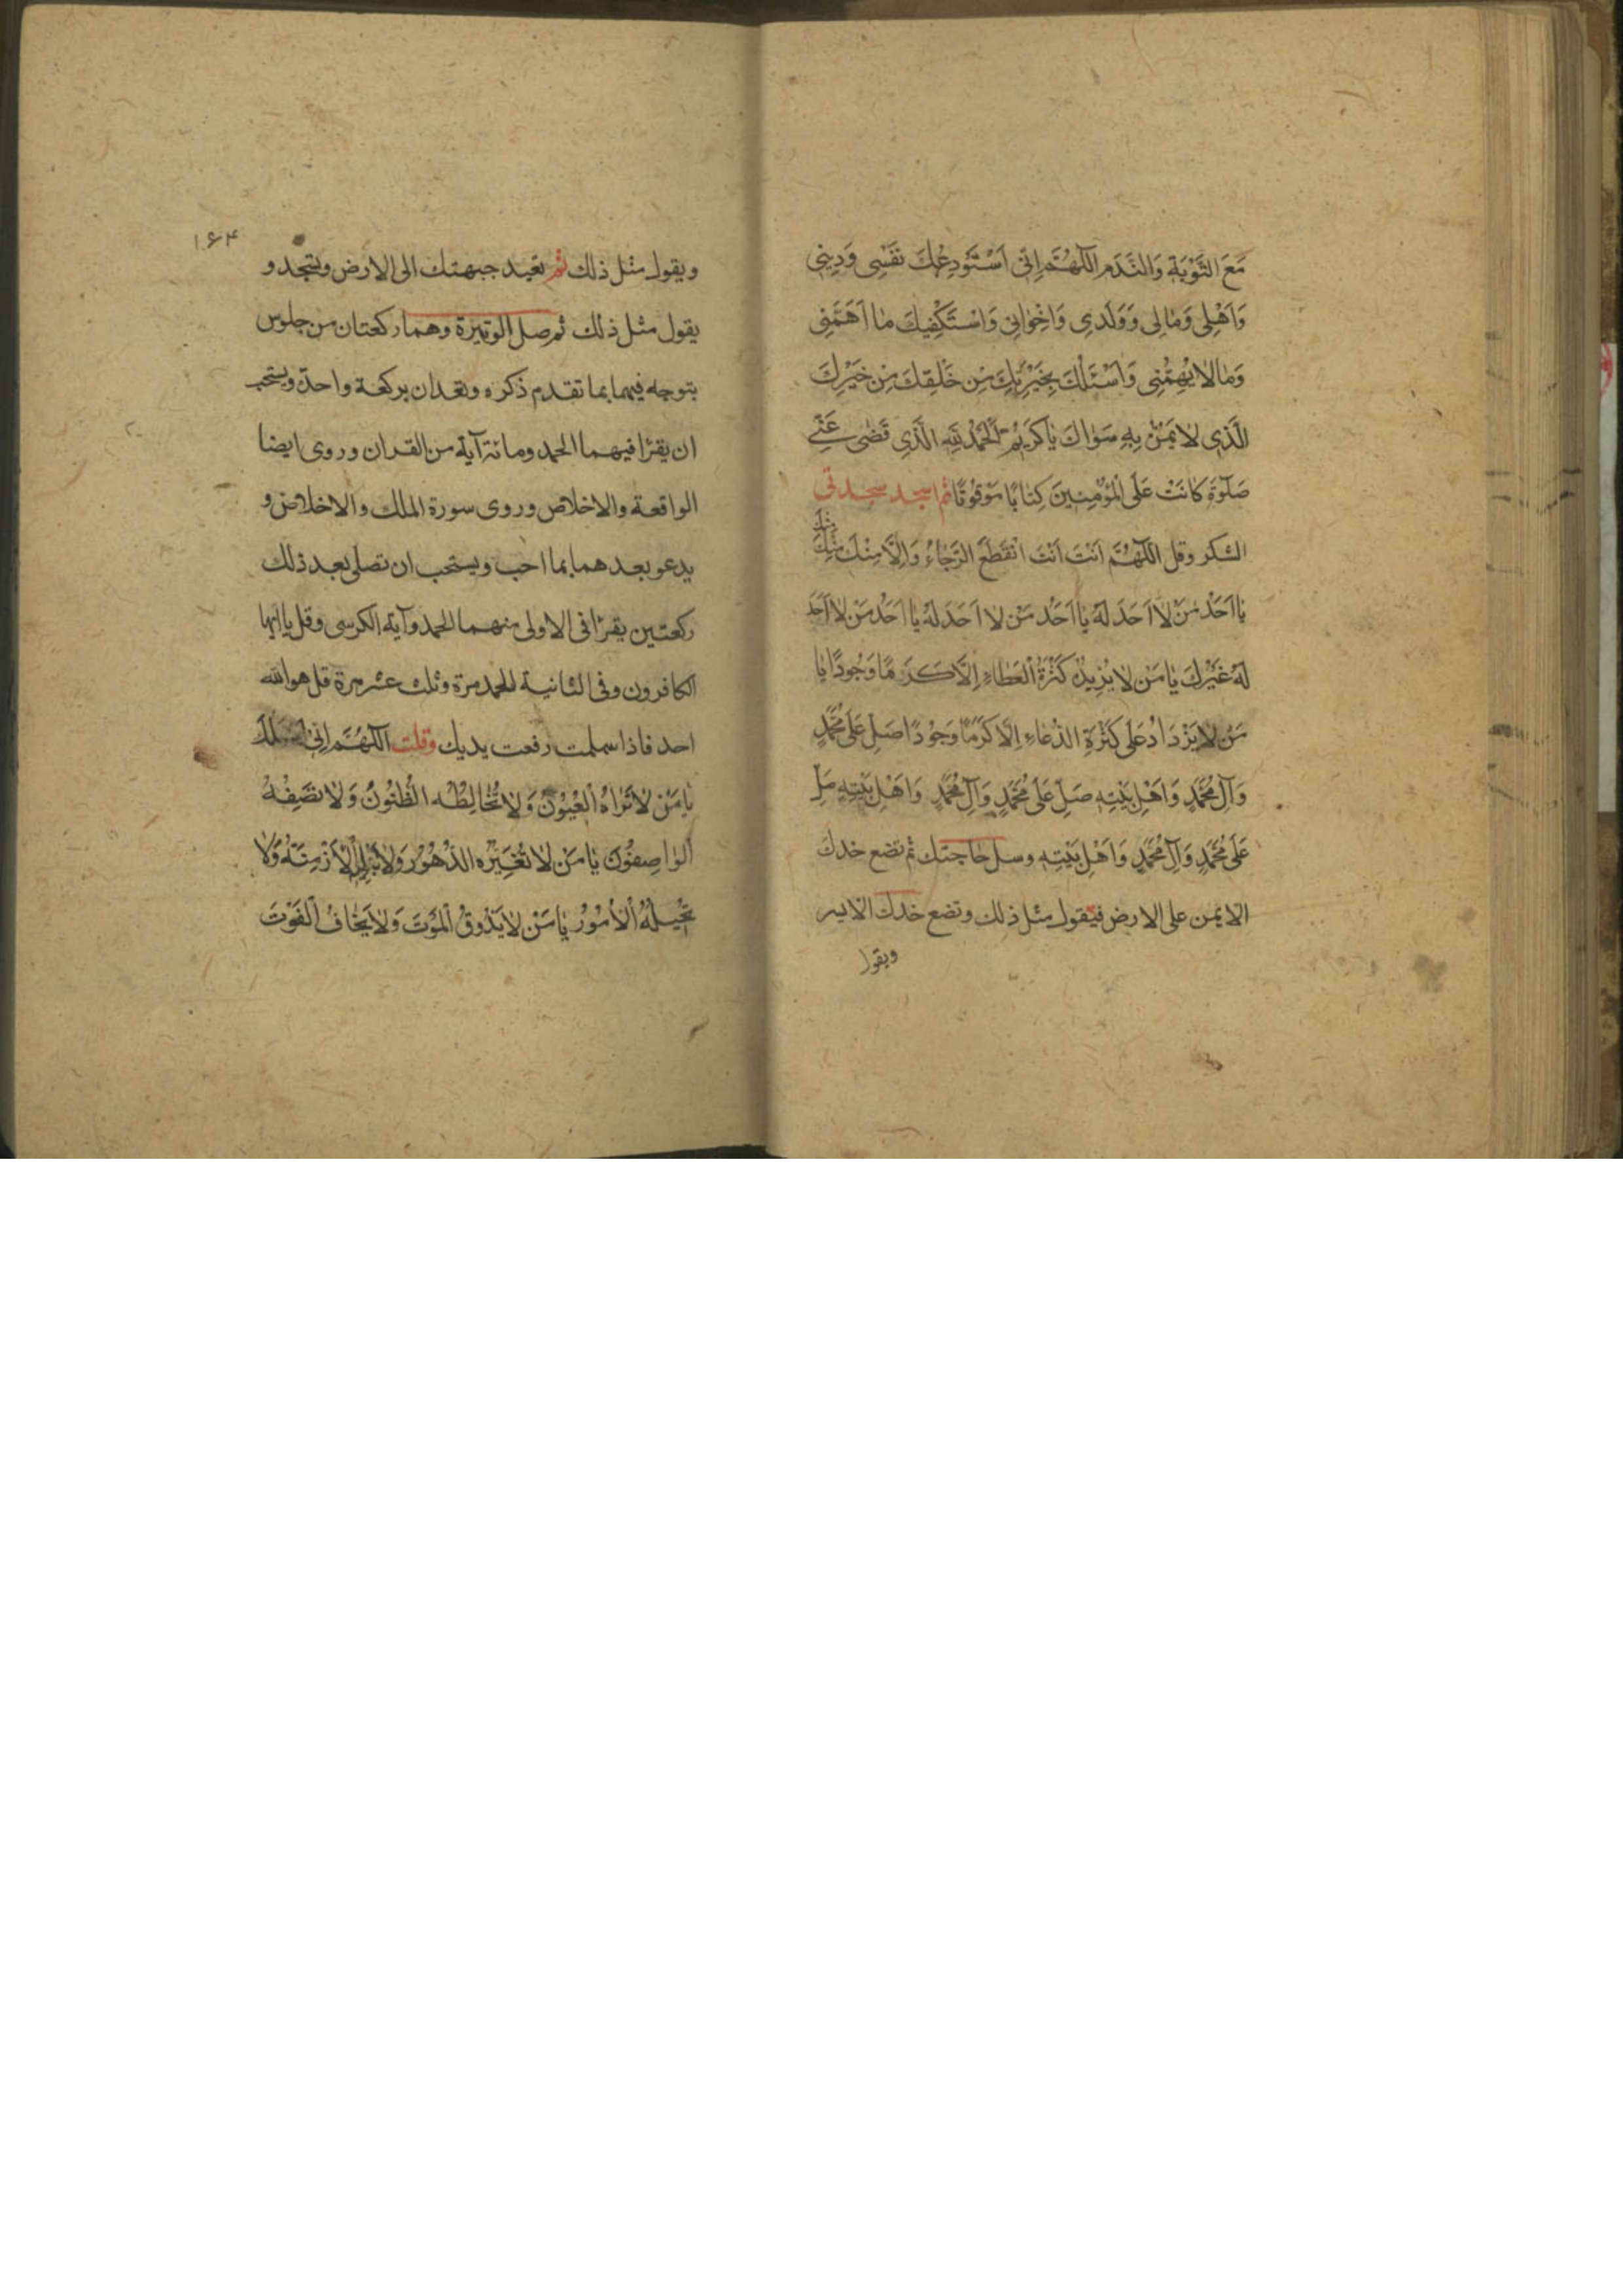 مَعَ التَّوْبَةِ وَالنَّدَمِ اَللّٰهُمَّ اِنّى اَسْتَوْدِعُكَ نَفْسِى وَدِينِى
وَاَهْلِى وَمٰالِى وَوَلَدِى وَاِخْوٰانِى وَاَسْتَكْفِيكَ مٰا اَهَمَّنِى
وَمٰالاٰ يُهِمُّنِى وَاَسْئَلُكَ بِخِيَرَتِكَ مِنْ خَلْقِكَ مِنْ خَيْرِكَ
الَّذِى لاٰ يَمُنُّ بِهِ سَوٰاكَ يٰا كَرِيْمُ اَلْحَمْدُ لِلّٰهِ الَّذِى قَضٰى عَنّى
صَلٰوةً كٰانَتْ عَلَى الْمُؤْمِنِينَ كِتٰابًا مَوْقُوتًا ثم اسجد سجدتى
الشكر وقل اَللّٰهُمَّ اَنْتَ اَنْتَ انْقَطَعَ الرَّجٰاءُ وَاِلاَّ مِنْكَ مِنْكَ
مِنْكَ
يٰا اَحَدَ مَنْ لاٰ اَحَدَ لَهُ يٰا اَحَدَ مَنْ لاٰ اَحَدَ لَهُ يٰا اَحَدَ مَنْ لاٰ اَحَدَ
لَهُ غَيْرُكَ يٰا مَنْ لاٰ يَزِيدُ كَثْرَةُ الْعَطٰاءِ اِلاَّ كَرَمًا وَجُودًا يٰا
مَنْ لاٰ يَزْدَادُ عَلٰى كَثْرَةِ الدُّعٰاءِ اِلاّٰ كَرَمًا وَجُوْدًا صَلِّ عَلٰى مُحَمَّدٍ
وَآلِ مُحَمَّدٍ وَاَهْلِ بَيْتِهِ صَلِّ عَلٰى مُحَمَّدٍ وَآلِ مُحَمَّدٍ وَاَهْلِ بَيْتِهِ صَلِّ
عَلٰى مُحَمَّدٍ وَآلِ مُحَمَّدٍ وَاَهْلِ بَيْتِهِ وسل حٰاجتك ثم تضع خدك
الايمن على الارض فيقول مثل ذلك وتضع خدك الايسر
ويقول
۱۶۴
ويقول مثل ذلك ثم تعيد جبهتك الى الارض وتسجد و
يقول مثل ذلك ثم صل الوتيرة وهما ركعتان من جلوس
يتوجه فيهما بما تقدم ذكره وتعدان بركعة واحدة ويستحب
ان يقرا فيهما الحمد ومائة آية من القران وروى ايضا
الواقعة والاخلاص وروى سورة الملك والاخلاص و
يدعو بعدهما بما احب ويستحب ان تصلى بعد ذلك
ركعتين يقرا فى الاولى منهما الحمد وآية الكرسى وقل يا ايها
الكافرون وفى الثانية الحمد مرة وثلث عشر مرة قل هو الله
احد فاذا سلمت رفعت يديك وقلت اَللّٰهُمَّ اِنِّى اَسْئَلُكَ
يٰا مَنْ لاٰ تَرٰاهُ الْعُيُوْنُ وَلاٰ تُخٰالِطُهُ الظُّنُونُ وَلاٰ تَصِفُهُ
الْوٰاصِفُونَ يٰا مَنْ لاٰ تُغَيِّرُه الدُّهُوْرُ وَلاٰ تُبْلِيْهِ الْاَزْمِنَةُ وَلاٰ
تُحِيلُهُ الْاُمُوْرُ يٰا مَنْ لاٰ يَذُوقُ الْمَوْتَ وَلاٰ يَخٰافُ الْفَوْتَ